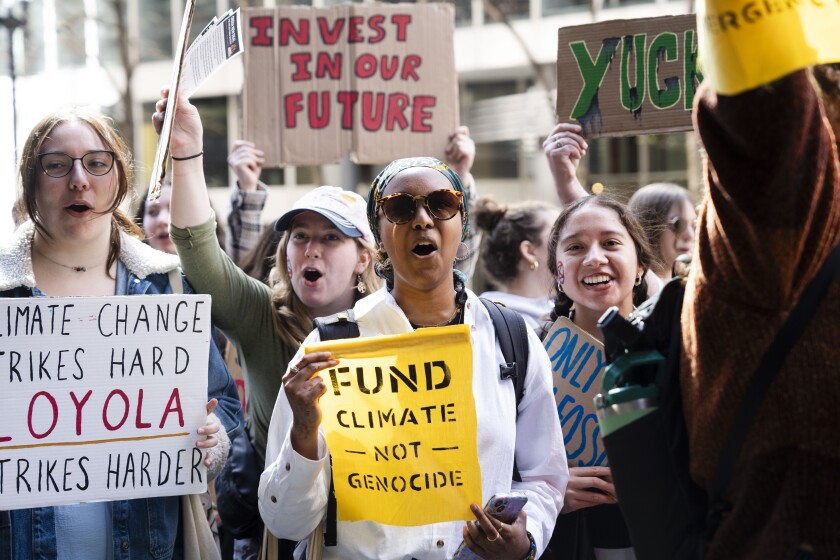 INVEST
IN OUR
FUTURE
YUCK
ERGENC
LIMATE - CHANGE
TRIKES HARD
LOYOLA
TRIKES HARDER
FUND
CLIMATE
— NOT —
GENOCIDE
ONLY
FOSS